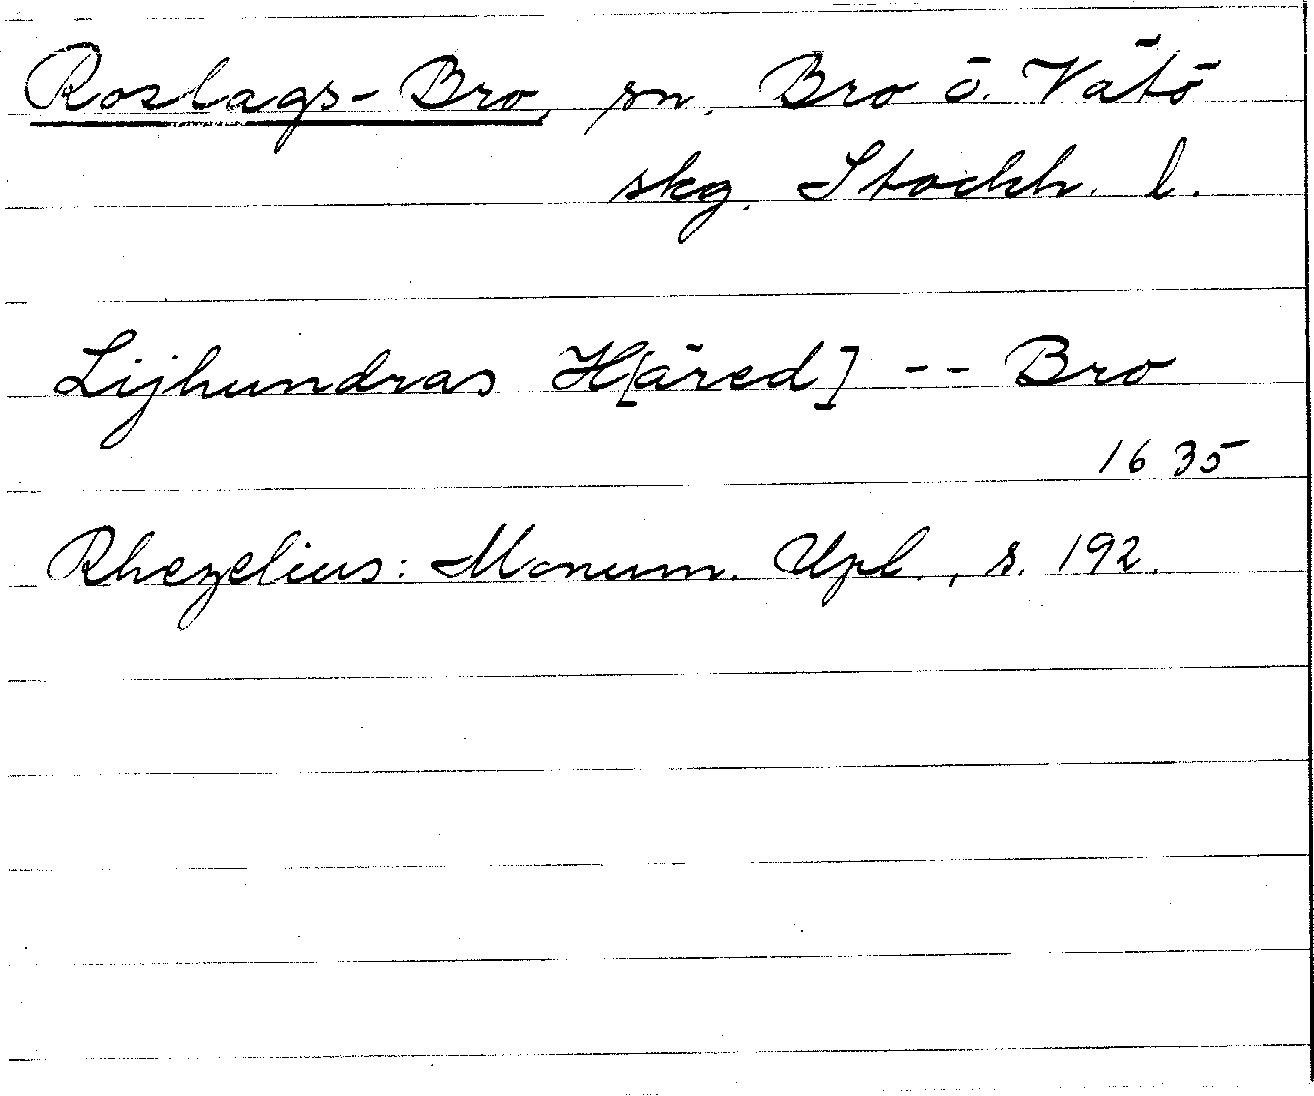 Roslags-Bro, sn, Bro ö. Vätö
skg. Stockh. l.
Lijhundras H[äred] -- Bro
1635
Rhezelius: Monum. Upl., s. 192.